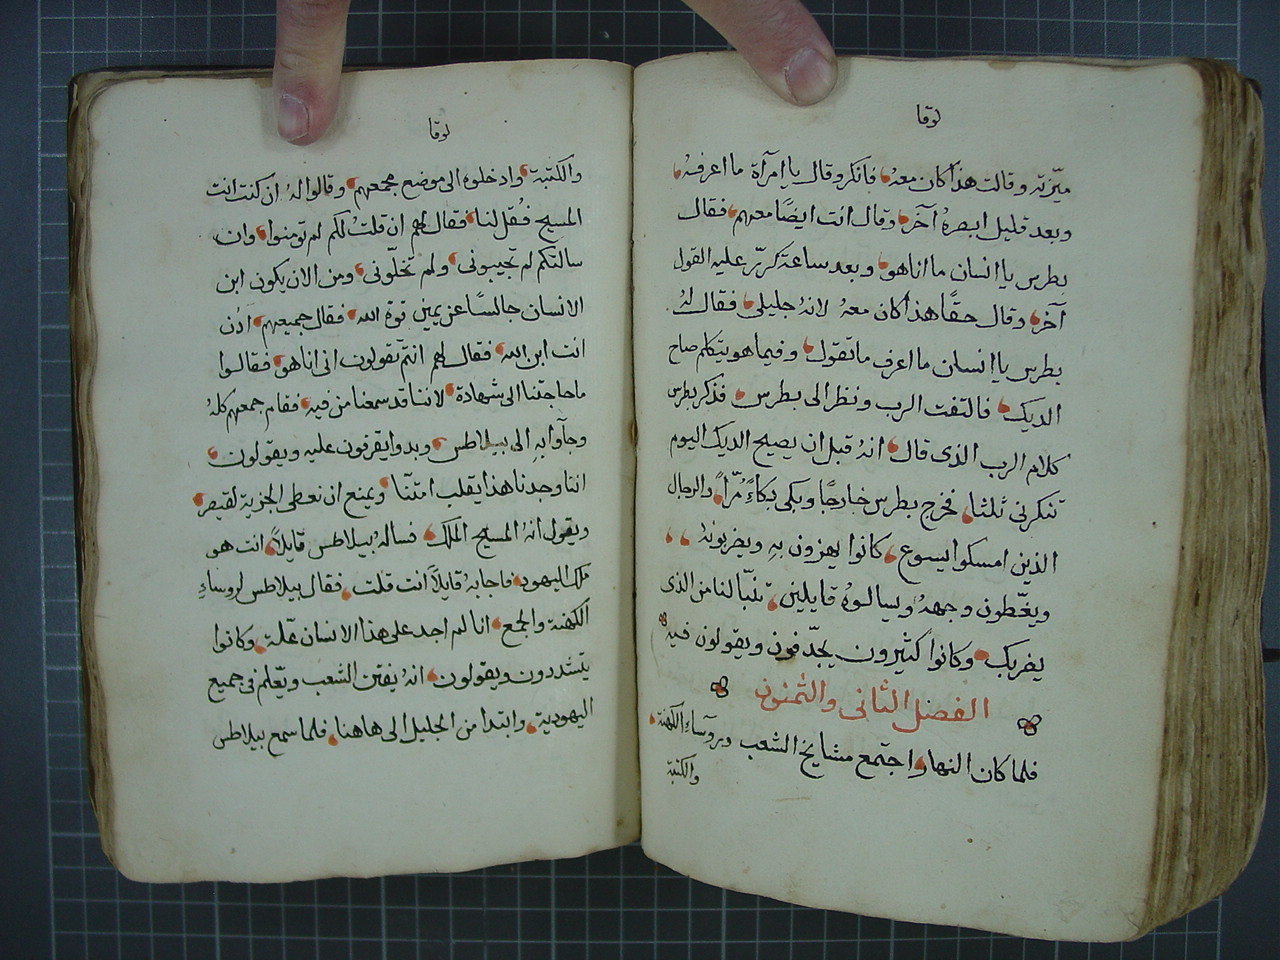 لوقا
ميّزته وقالت هذا كان معهُ، فانكر وقال يا امرآة ما اعرفهُ،
وبعد قليل ابصرهُ آخر، وقال انت ايضًا معهم، فقال
بطرس يا انسان ما اناهو، وبعد ساعة كرّر عليه القول
آخر، وقال حقًّا هذا كان معهُ لانهُ جليلى، فقال لهُ
بطرس يا انسان ما اعرف ما تقول، وفيما هو يتكلم صاح
الديك، فالتفت الرب ونظر الى بطرس، فذكر بطرس
كلام الرب الذى قال، انهُ قبل ان يصيح الديك اليوم
تنكرنى ثلثا، فخرج بطرس خارجًا وبكى بكاءً مُرّاً، والرجال
الذين امسكوا يسوع، كانوا يهزون بهِ ويضربونهُ،،
ويغّطون وجههُ ويسالوهُ قايلين، تنّبا لنا من الذى
يضربك، وكانوا كثيرون يجدّفون ويقولون فيه
الفصل الثانى والثمنون
فلما كان النهار، اجتمع مشايخ الشعب وروٓساء الكهنة،
والكتبة
لوقا
والكتبة، وادخلوه الى موضع مجمعهم، وقالوا لهُ ان كنت انت
المسيح فقُل لنا، فقال لهم ان قلتُ لكم لم تومنوا، وان
سالتكم لم تجيبونى، ولم تخلّونى، ومن الان يكون ابن
الانسان جالسًا عن يمين قوة الله، فقال جميعهم، اذن
انت ابن الله، فقال لهم انتم تقولون انى اناهو، فقالوا
ما حاجتنا الى شهادة، لاننا قد سمعنا من فيه، فقام جمعهم كلهُ
وجآوا بهِ الى بيلاطس، وبدوا يقرفون عليه ويقولون،
اننا وجدنا هذا يقلب امتنّا، ويمنع ان نعطى الجزية لقيصر،
ويقول انهُ المسيح الملك، فسالهُ بيلاطس قايلاً، انت هو
ملك اليهود، فاجابهُ قايلاً انت قلت، فقال بيلاطس لروساءِ
الكهنة والجمع، انا لم اجد على هذا الانسان علّة، وكانوا
يتشددون ويقولون، انهُ يفتن الشعب ويعّلم فى جميع
اليهودية، وابتدا من الجليل الى هاهنا، فلما سمع بيلاطس